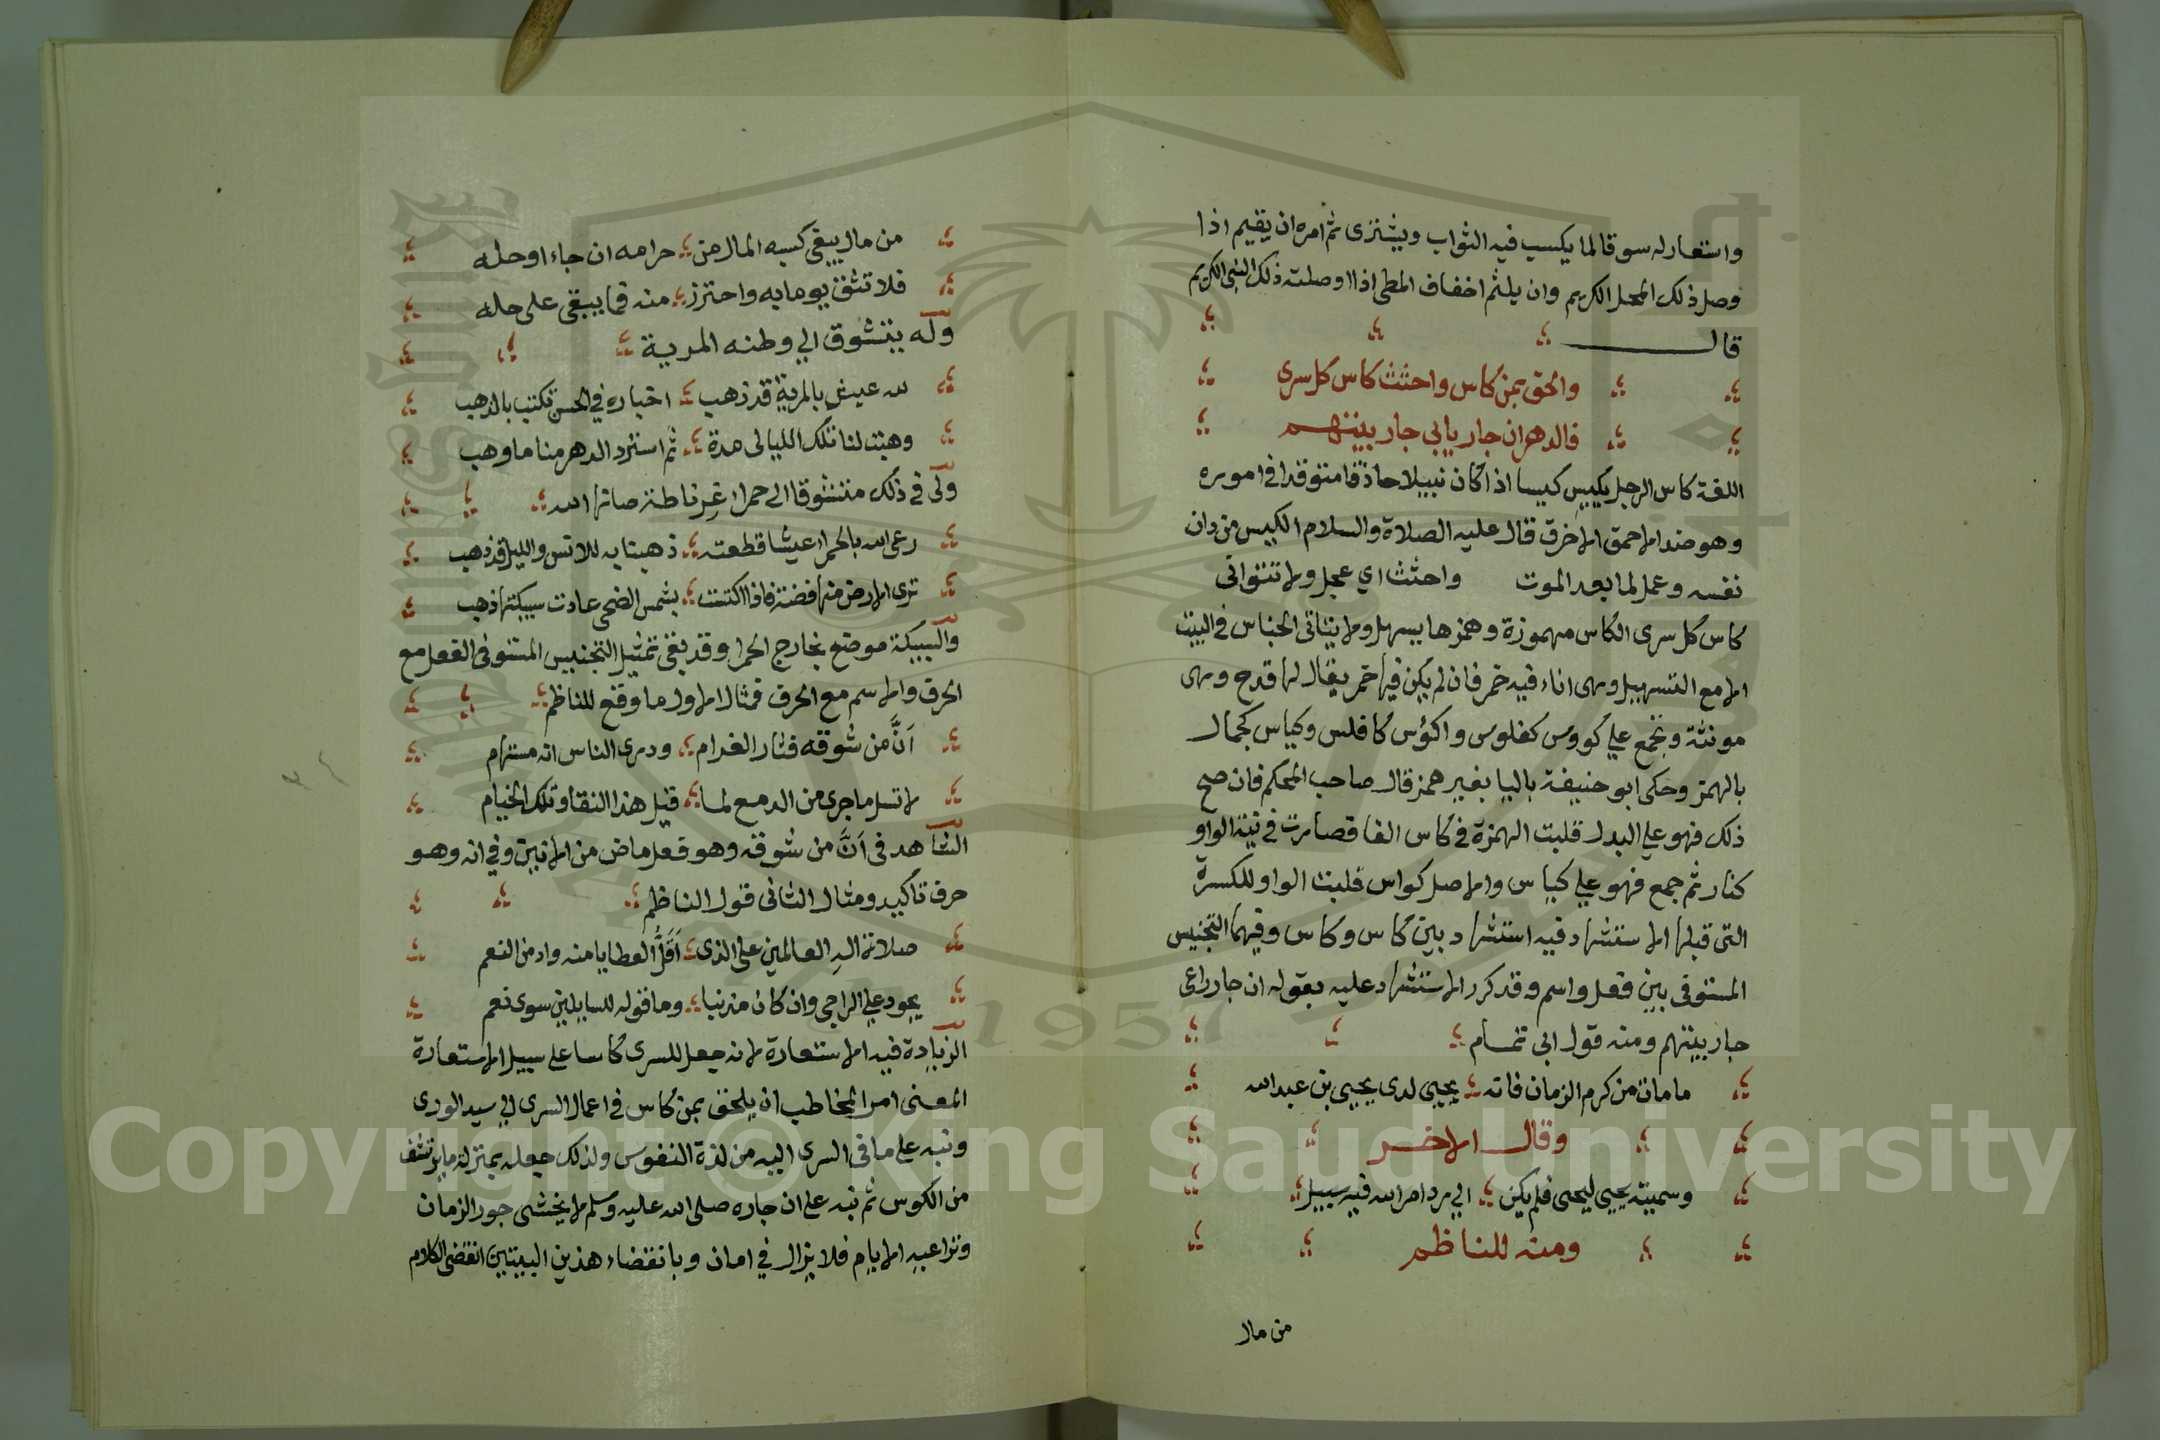 واستعار له سوقا لما يكسب فيه الثواب ويشترى ثم امره ان يقيم اذا
وصل ذلك المحل الكريم وان يلثم اخفاف المطى اذا اوصلته ذلك النبى الكريم
قال
والحق بمن كاس واحثث كاس كل سرى
فالدهر ان جار يابى جار بينهم
اللغة كاس الرجل يكيس كيسا اذا كان نبيلا حاذقا متوقدا فى اموره
وهو ضد الاحمق الاخرق قال عليه الصلاة والسلام الكيس من دان
نفسه وعمل لما بعد الموت واحثث اي عجل ولا تتوانى
كاس كل سرى الكاس مهموزة وهمزها يسهل ولا يتاتى الجناس فى البيت
الا مع التسهيل وهى اناء فيه خمر فان لم يكن فيها خمر يقال لها قدح وهى
مونثة وتجمع علي كووس كفلوس واكؤس كافلس وكياس كجمال
بالهمز وحكى ابو حنيفة بالياء بغير همز قال صاحب المحكم فان صح
ذلك فهو علي البدل قلبت الهمزة في كاس الفا فصارت في نية الواو
كنار ثم جمع فهو علي كياس والاصل كواس قلبت الواو للكسرة
التى قبلها الاستشهاد فيه استشهاد بين كاس وكاس وفيهما التجنيس
المستوفى بين فعل واسم وقد كرر الاستشهاد عليه بقوله ان جار راعى
جار بينهم ومنه قول ابى تمام
مامات من كرم الزمان فانه يحيى لدى يحيى بن عبد الله
وقال الاخر
وسميته يحيى ليحيى فلم يكن الي رد امر الله فيه سبيل
ومنه للناظم
من مال
من مال يبقى كسبه المال من حرامه ان جاء او حله
فلا تثق يوما به واحترز منه فما يبقى على حله
وله يتشوق الي وطنه المرية
لله عيش بالمرية قد ذهب اخباره في الحسن تكتب بالذهب
وهبت لنا تلك الليالى مدة ثم استرد الدهر منا ما وهب
ولى فى ذلك متشوقا الى حمراء غرناطة صانها الله
رعى الله بالحمراء عيشا قطعته ذهبنا به للانس والليل قد ذهب
ترى الارض منها فضة فاذا اكتست بشمس الضحى عادت سبيكتها ذهب
والسبيكة موضع بخارج الحمراء وقد بقى تمثيل التجنيس المستوفى الفعل مع
الحرف والاسم مع الحرف فمثال الاول ما وقع للناظم
اَنَّ من شوقه فثار الغرام ودرى الناس انه مستهام
لا تسل ما جرى من الدمع لما قيل هذا النقا وتلك الخيام
الشاهد فى اَنَّ من شوقه وهو فعل ماض من الانين وفي انه وهو
حرف تاكيد ومثال الثانى قول الناظم
صلاة اله العالمين على الذى اَقَلُّ العطايا منه واد من النعم
يجود علي الراجى وان كان مذنبا وما قوله للسايلين سوى نعم
الزيادة فيه الاستعارة لانه جعل للسرى كاسا على سبيل الاستعارة
المعنى امر المخاطب ان يلحق بمن كاس فى اعمال السرى الي سيد الورى
ونبه على ما فى السرى اليه من لذة النفوس ولذلك جعله بمنزلة ما يرتشف
من الكوس ثم نبه على ان جاره صلى الله عليه وسلم لا يخشى جور الزمان
وتراعيه الايام فلا يزال في امان وبانقضاء هذين البيتين انقضى الكلام
Copyright © King Saud University
1957